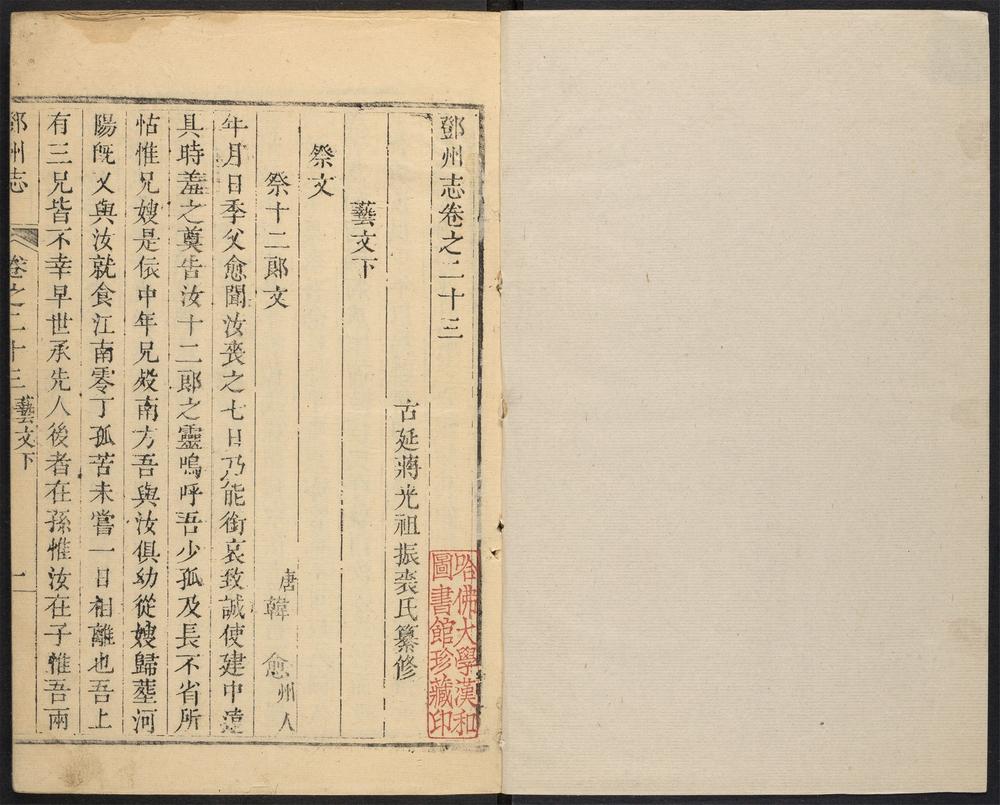 鄧州志卷之二十三
古延蔣光祖振裘氏纂修
藝文下
祭文
祭十二郎文
唐韓愈州人
年月日季父愈聞汝喪之七日乃能銜哀致誠使建中遠
具時羞之奠告汝十二郎之靈嗚呼吾少孤及長不省所
怙惟兄嫂是依中年兄歿南方吾與汝俱幼從嫂歸葬河
陽旣又與汝就食江南零丁孤苦未嘗一日相離也吾上
有三兄皆不幸早世承先人後者在孫惟汝在子惟吾兩
鄧州志
卷之二十三
藝文下
一
哈佛大學漢和
圖書館珍藏印